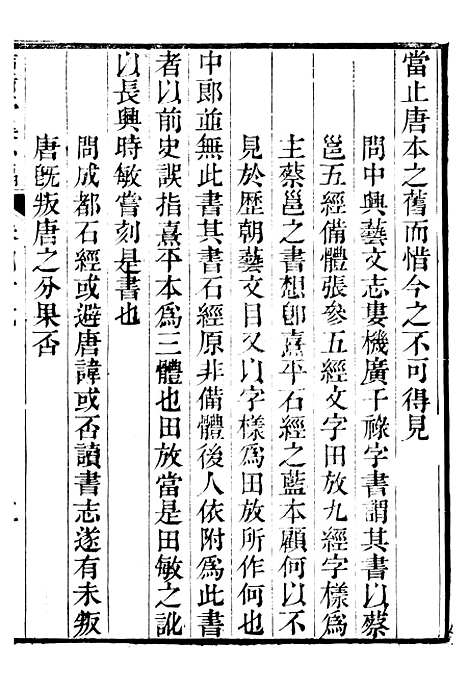 當止唐本之舊而惜今之不可得見
問中興藝文志婁機廣干祿字書謂其書以蔡
邕五經備體張參五經文字田放九經字樣爲
主蔡邕之書想卽熹平石經之藍本顧何以不
見於歷朝藝文目又以字樣爲田放所作何也
中郞並無此書其書石經原非備體後人依附爲此書
者以前史誤指熹平本爲三體也田放當是田敏之訛
以長興時敏嘗刻是書也
問成都石經或避唐諱或否讀書志遂有未叛
唐旣叛唐之分果否